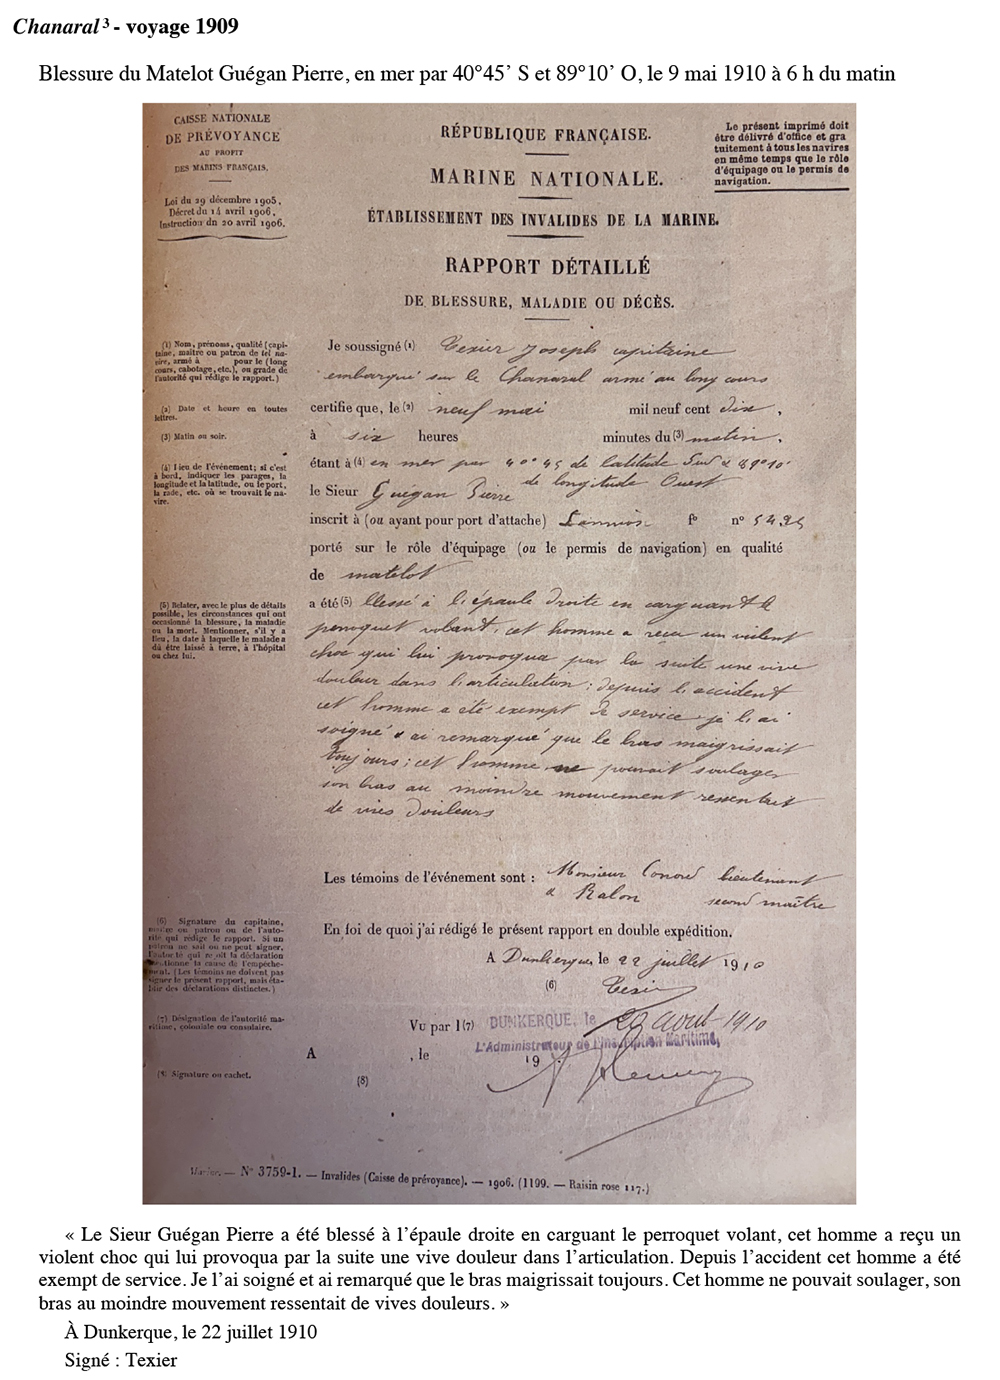 Chanaral ³ - voyage 1909
Blessure du Matelot Guégan Pierre, en mer par 40°45’ S et 89°10’ O, le 9 mai 1910 à 6 h du matin
CAISSE NATIONALE
DE PRÉVOYANCE
AU PROFIT
DES MARINS FRANÇAIS.
Loi du 29 décembre 1905,
Décret du 14 avril 1906,
Instruction dn 20 avril 1906.
RÉPUBLIQUE FRANÇAISE.
MARINE NATIONALE.
ÉTABLISSEMENT DES INVALIDES DE LA MARINE.
RAPPORT DÉTAILLÉ
DE BLESSURE, MALADIE OU DÉCÈS.
Le présent imprimé doit
être délivré d'office et gra
tuitement à tous les navires
en même temps que le rôle
d'équipage ou le permis de
navigation.
(1) Nom, prénoms, qualité (capi-
taine, maître ou patron de tel na-
vire, armé à pour le (long
cours, cabotage, etc.), ou grade de
l'autorité qui rédige le rapport.)
(2) Date et heure en toutes
lettres.
(3) Matin ou soir.
(4) Lieu de l'événement; si c'est
à bord, indiquer les parages, la
longitude et la latitude, ou le port,
la rade, etc. où se trouvait le na-
vire.
(5) Relater, avec le plus de détails
possible, les circonstances qui ont
occasionné la blessure, la maladie
ou la mort. Mentionner, s'il y a
lieu, la date à laquelle le malade a
dû être laissé à terre, à l'hôpital
ou chez lui.
Je soussigné (1) Texier Joseph capitaine
embarqué sur le Chanaral armé au long cours
certifie que, le (2) neuf mai mil neuf cent dix,
à six heures minutes du (3) matin.
étant à (4) en mer par 40°45 de latitude Sud & 89°10'
de longitude Ouest
le Sieur Guégan Pierre
inscrit à (ou ayant pour port d'attache) Lannion f° n° 5495
porté sur le rôle d'équipage (ou le permis de navigation) en qualité
de matelot
a été (5) blessé à l'épaule droite en carguant le
perroquet volant, cet homme a reçu un violent
choc qui lui provoqua par la suite une vive
douleur dans l'articulation; depuis l'accident
cet homme a été exempt de service. je l'ai
soigné & ai remarqué que le bras maigrissait
toujours; cet homme ne pouvait soulager
son bras au moindre mouvement ressentait
de vives douleurs
Les témoins de l'événement sont : Monsieur Conord lieutenant
& Ralon second maître
En foi de quoi j'ai rédigé le présent rapport en double expédition.
A Dunkerque, le 22 juillet 1910
(6) Texier
(6) Signature du capitaine,
maître ou patron ou de l'auto-
rité qui rédige le rapport. Si un
patron ne sait ou ne peut signer,
l'autorité qui reçoit la déclaration
mentionne la cause de l'empêche-
ment. (Les témoins ne doivent pas
signer le présent rapport, mais éta-
blir des déclarations distinctes.)
(7) Désignation de l'autorité ma-
ritime, coloniale ou consulaire.
(8) Signature ou cachet.
Vu par l (7) DUNKERQUE, le 29 août 1910
L'Administrateur de l'Inscription Maritime,
A , le 19
(8)
N° 3759-1. — Invalides (Caisse de prévoyance). — 1906. (1199. — Raisin rose 117.)
« Le Sieur Guégan Pierre a été blessé à l’épaule droite en carguant le perroquet volant, cet homme a reçu un
violent choc qui lui provoqua par la suite une vive douleur dans l’articulation. Depuis l’accident cet homme a été
exempt de service. Je l’ai soigné et ai remarqué que le bras maigrissait toujours. Cet homme ne pouvait soulager, son
bras au moindre mouvement ressentait de vives douleurs. »
À Dunkerque, le 22 juillet 1910
Signé : Texier